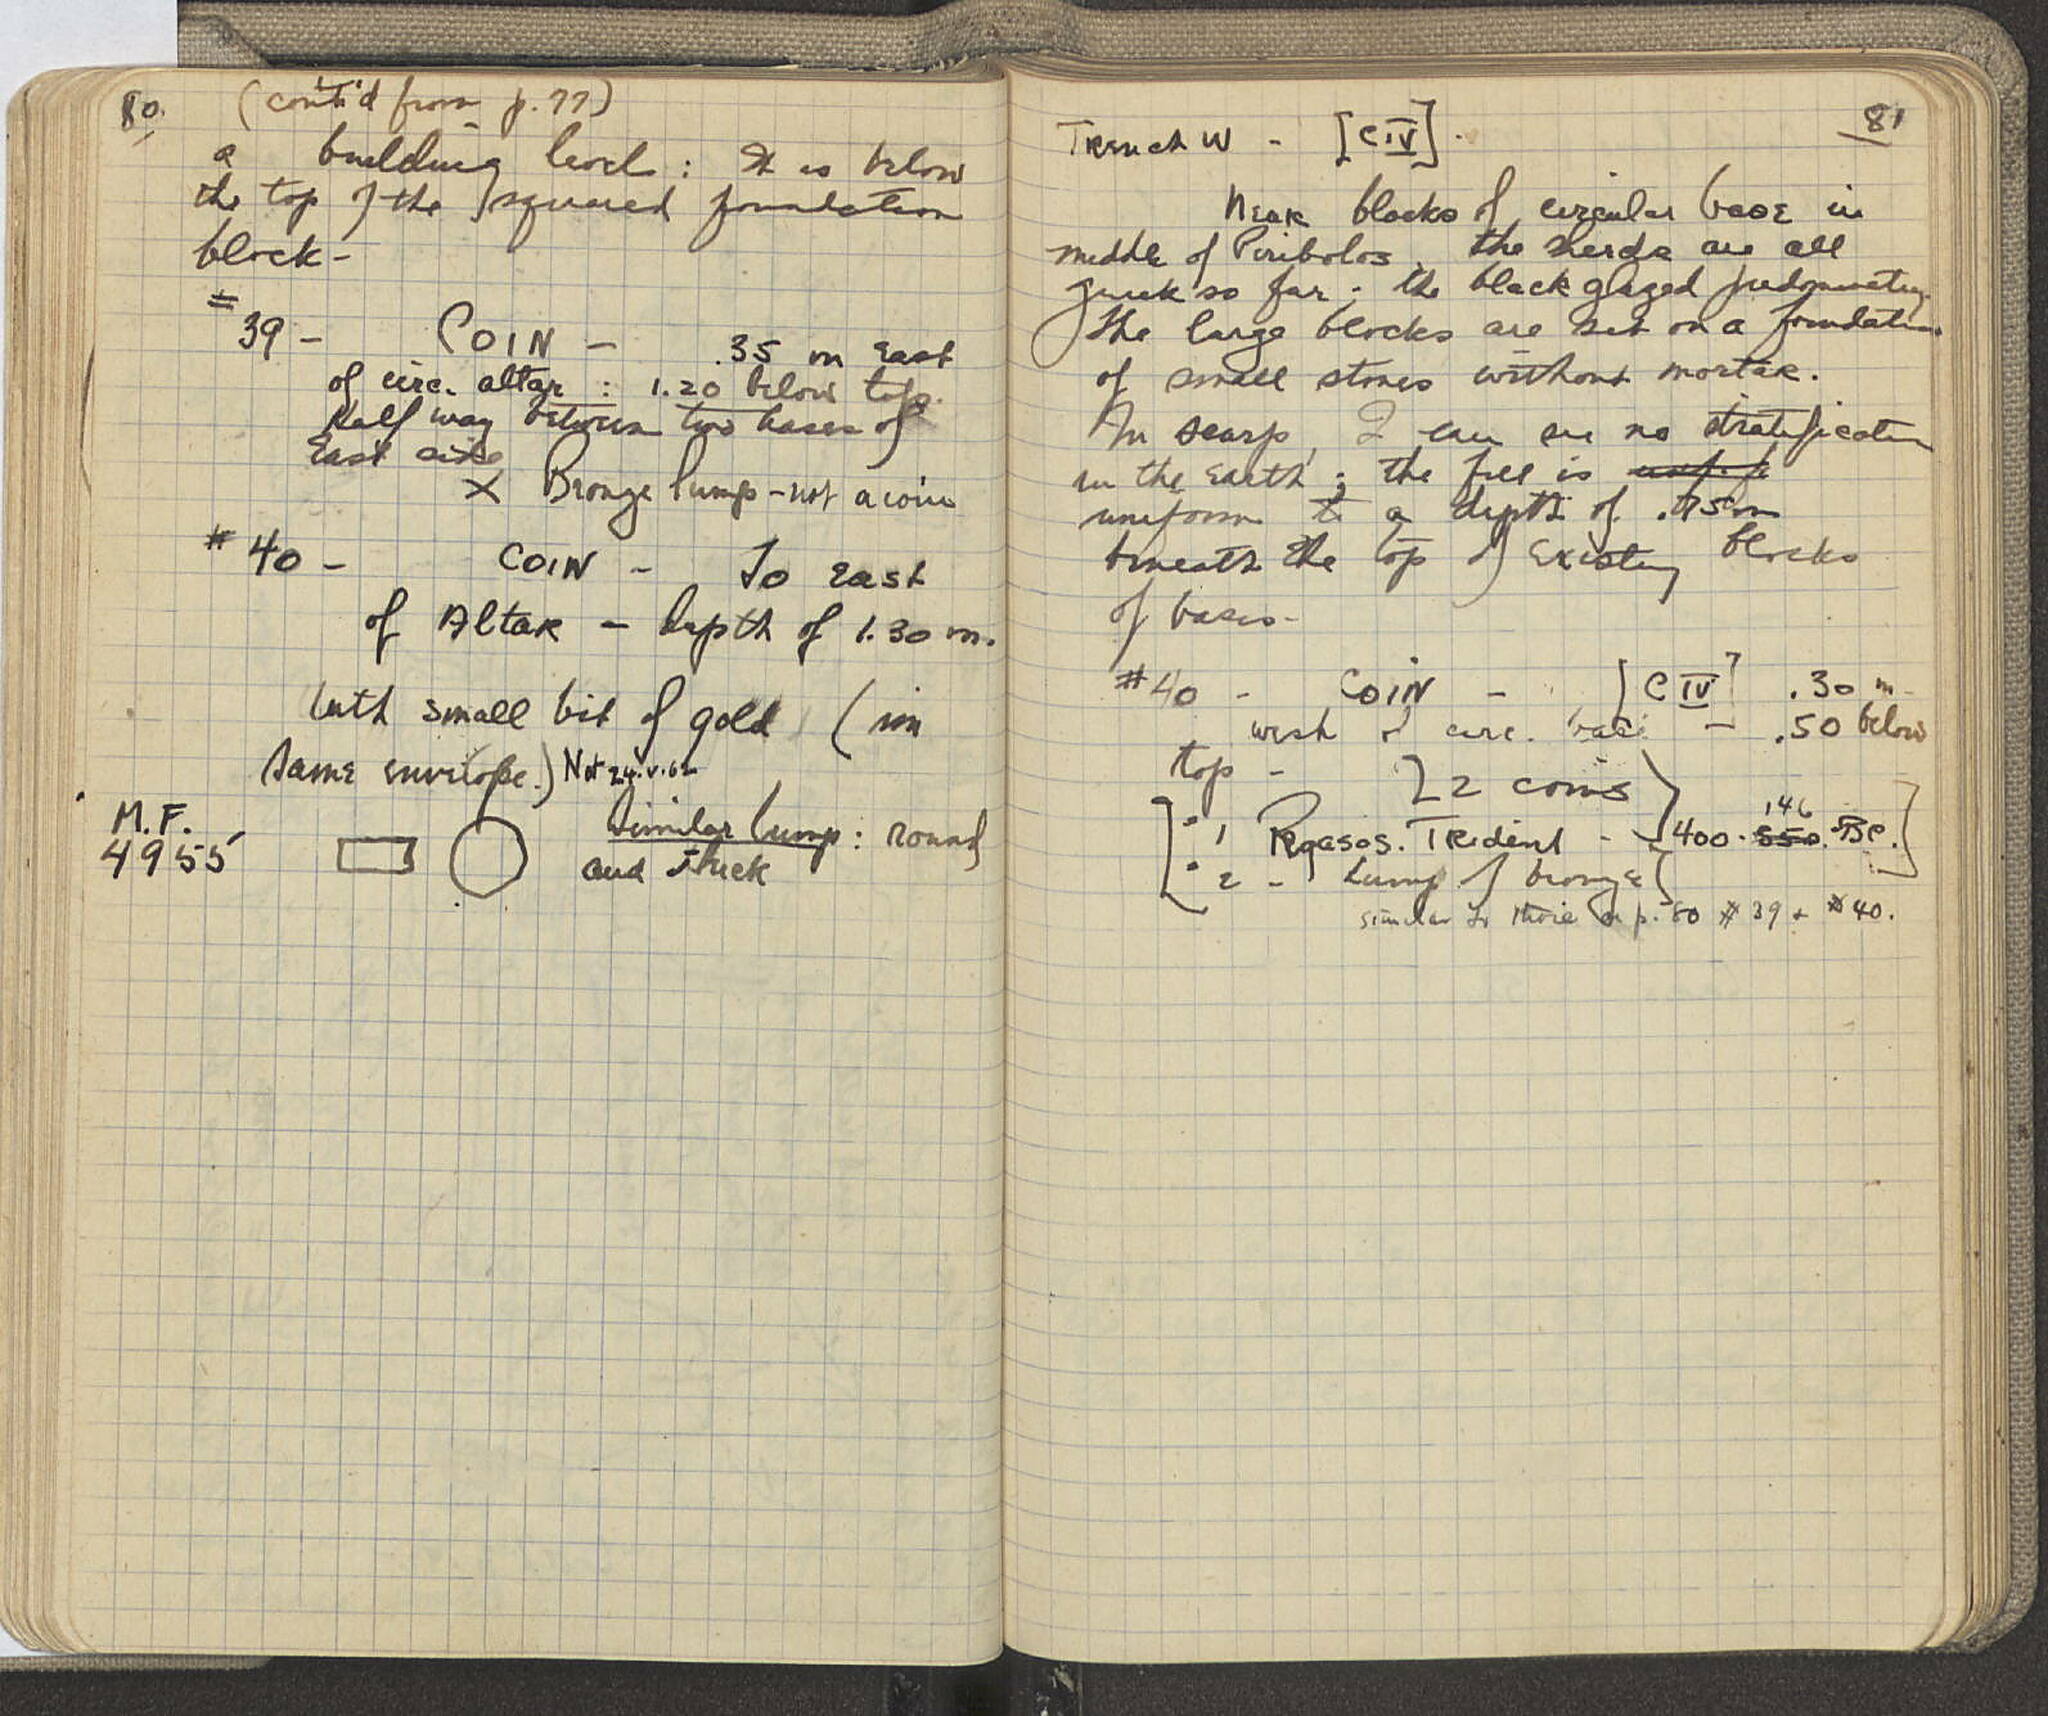 80.
(cont'd from p. 77)
a building level: It is below
the top of the squared foundation
block -
# 39 - COIN - .35 m East
of circ. altar : 1.20 below top.
Half way between two bases of
East side
X Bronze lump - not a coin
# 40 - COIN - To East
of Altar - depth of 1.30 m.
With small bit of gold (in
same envelope.) Not 24.V.62
M.F.
4955
Similar lump: round
and thick
81
Trench W - [C IV].
Near blocks of circular base in
middle of Peribolos, the sherds are all
Greek so far; the black glazed predominating.
The large blocks are set on a foundation
of small stones without mortar.
In scarp, I can see no stratification
in the Earth; the fill is
uniform to a depth of .75m
beneath the top of Existing blocks
of bases -
# 40 - COIN - [C IV] .30 m
west of circ. base - .50 below
top - ] 2 coins
1 Pegasos. Trident - 400 - 146 350. BC.]
2 - Lump of bronze
similar to those on p. 80 # 39 + # 40.